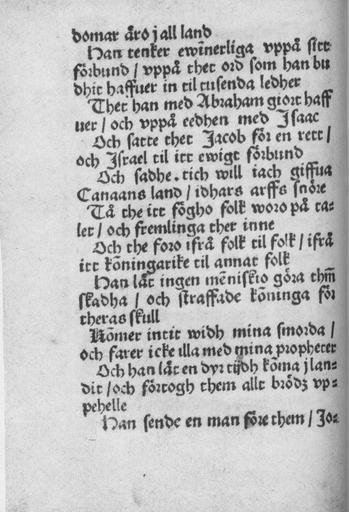 domar äro j all land
Han tenker ewīnerliga vppå sitt
förbund / vppå thet ord som han bu
dhit haffuer in til tusenda ledher
Thet han med Abraham giort haff
uer / och vppå eedhen med Isaac
Och satte thet Jacob för en rett /
och Israel til itt ewigt förbund
Och sadhe. tich will iach giffua
Canaans land / idhars arffs snöre
Tå the itt fögho folk woro på ta⸗
let / och fremlinga ther inne
Och the foro ifrå folk til folk / ifrå
itt kōningarike til annat folk
Han lät ingen mēniskio göra thm̄
skadha / och straffade kōninga för
theras skull
Kōmer intit widh mina smorda /
och farer icke illa med mina propheter
Och han lät en dyr tijdh kōma j lan⸗
dit / och förtogh them allt brödz vp⸗
pehelle
Han sende en man före them / Jo⸗